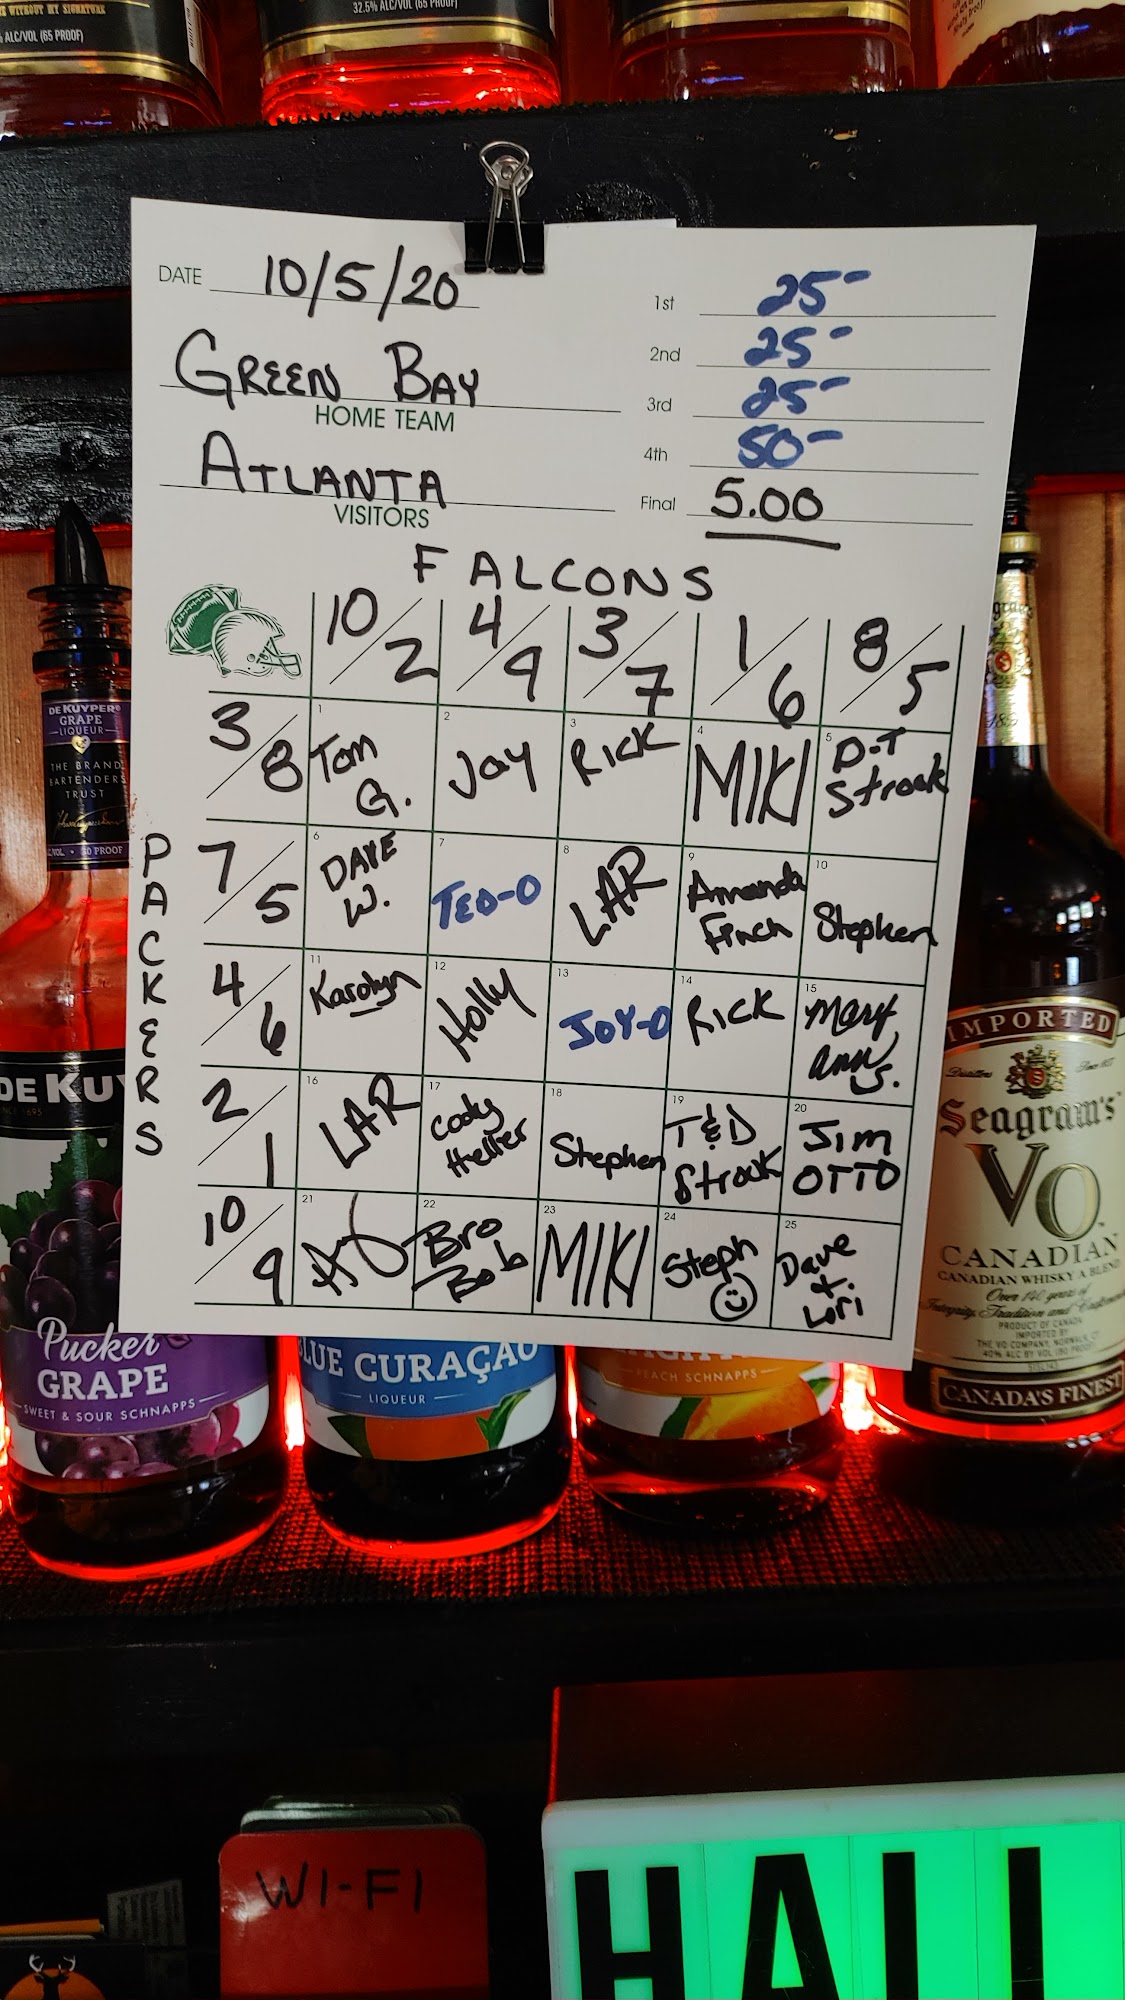 32.5% ALC/VOL (65 PROOF)
ALC/VOL (65 PROOF)
DATE 10/5/20
GREEN BAY
HOME TEAM
ATLANTA
VISITORS
1st 25-
2nd 25-
3rd 25-
4th 50-
Final 5.00
FALCONS
10/2 4/9 3/7 1/6 8/5
PACKERS
3/8
1 Tom G.
2 Joy
3 RICK
4 MIKI
5 D-T Stroak
7/5
6 DAVE W.
7 TED-O
8 LAR
9 Amanda Finch
10 Stephen
4/6
11 Karolyn
12 Holly
13 JOY-O
14 RICK
15 Mary Ann S.
2/1
16 LAR
17 Cody Heller
18 Stephen
19 T & D Stroak
20 JIM OTTO
10/9
21
22 Bro Bob
23 MIKI
24 Steph
25 Dave & Lori
DEKUYPER
GRAPE
LIQUEUR
THE BRAND
BARTENDERS
TRUST
DE KUY
Pucker
GRAPE
SWEET & SOUR SCHNAPPS
BLUE CURAÇAO
LIQUEUR
PEACH SCHNAPPS
IMPORTED
Seagram's
VO
CANADIAN
CANADIAN WHISKY A BLEND
PRODUCT OF CANADA
IMPORTED BY
CANADA'S FINEST
WI-FI
HALL